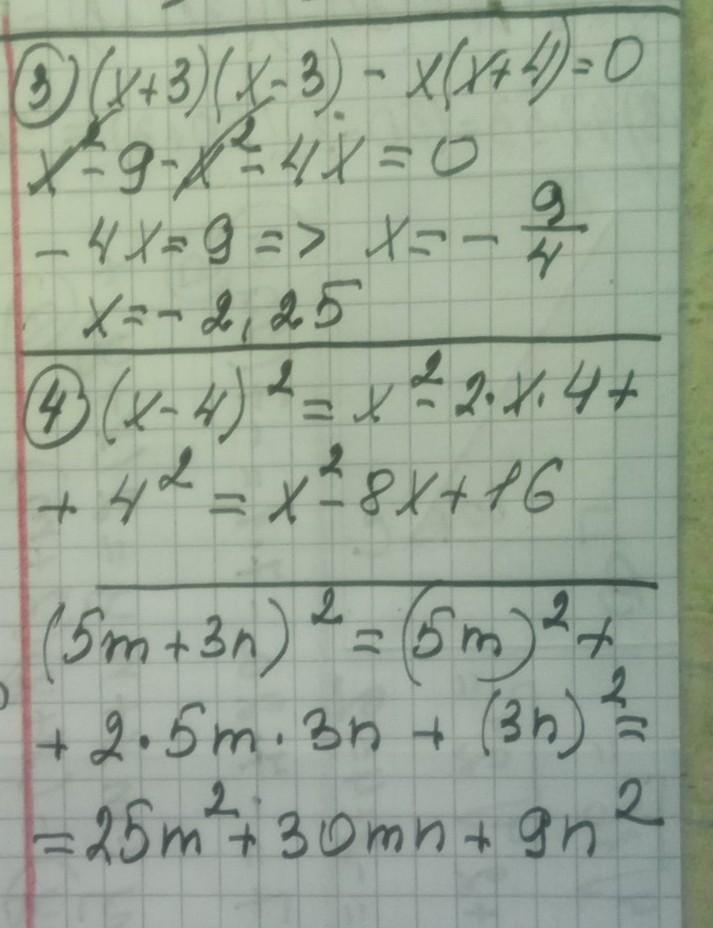 ③ (x+3)(x-3) - x(x+4)=0
x²-9-x²-4x=0
-4x=9=> x=-9/4
x=-2,25
④ (x-4)²=x²-2·x·4+
+4²=x²-8x+16
(5m+3n)²=(5m)²+
+2·5m·3n+(3n)²=
=25m²+30mn+9n²